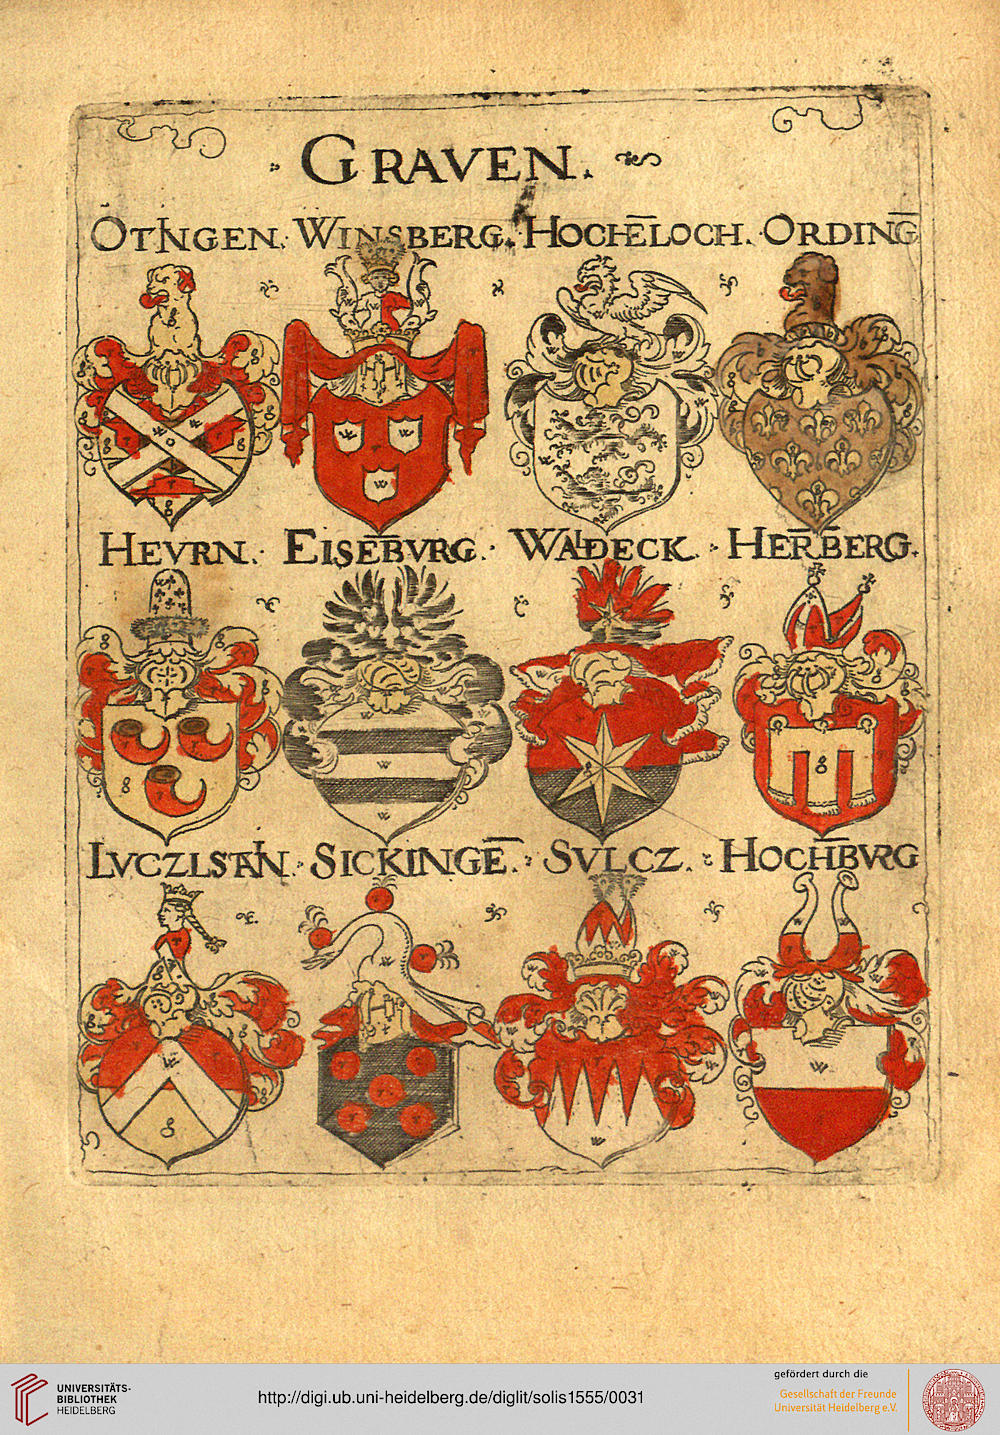 GRAVEN.
OTINGEN. WINSBERG. HOCHELOCH. ORDING̅
HEVRN. EISEB̅VRG. WALDECK. HER̅BERG.
LVCZLSTAIN. SICKINGE̅. SVLCZ. HOCHB̅VRG
UNIVERSITÄTS-
BIBLIOTHEK
HEIDELBERG
http://digi.ub.uni-heidelberg.de/diglit/solis1555/0031
gefördert durch die
Gesellschaft der Freunde
Universität Heidelberg e.V.